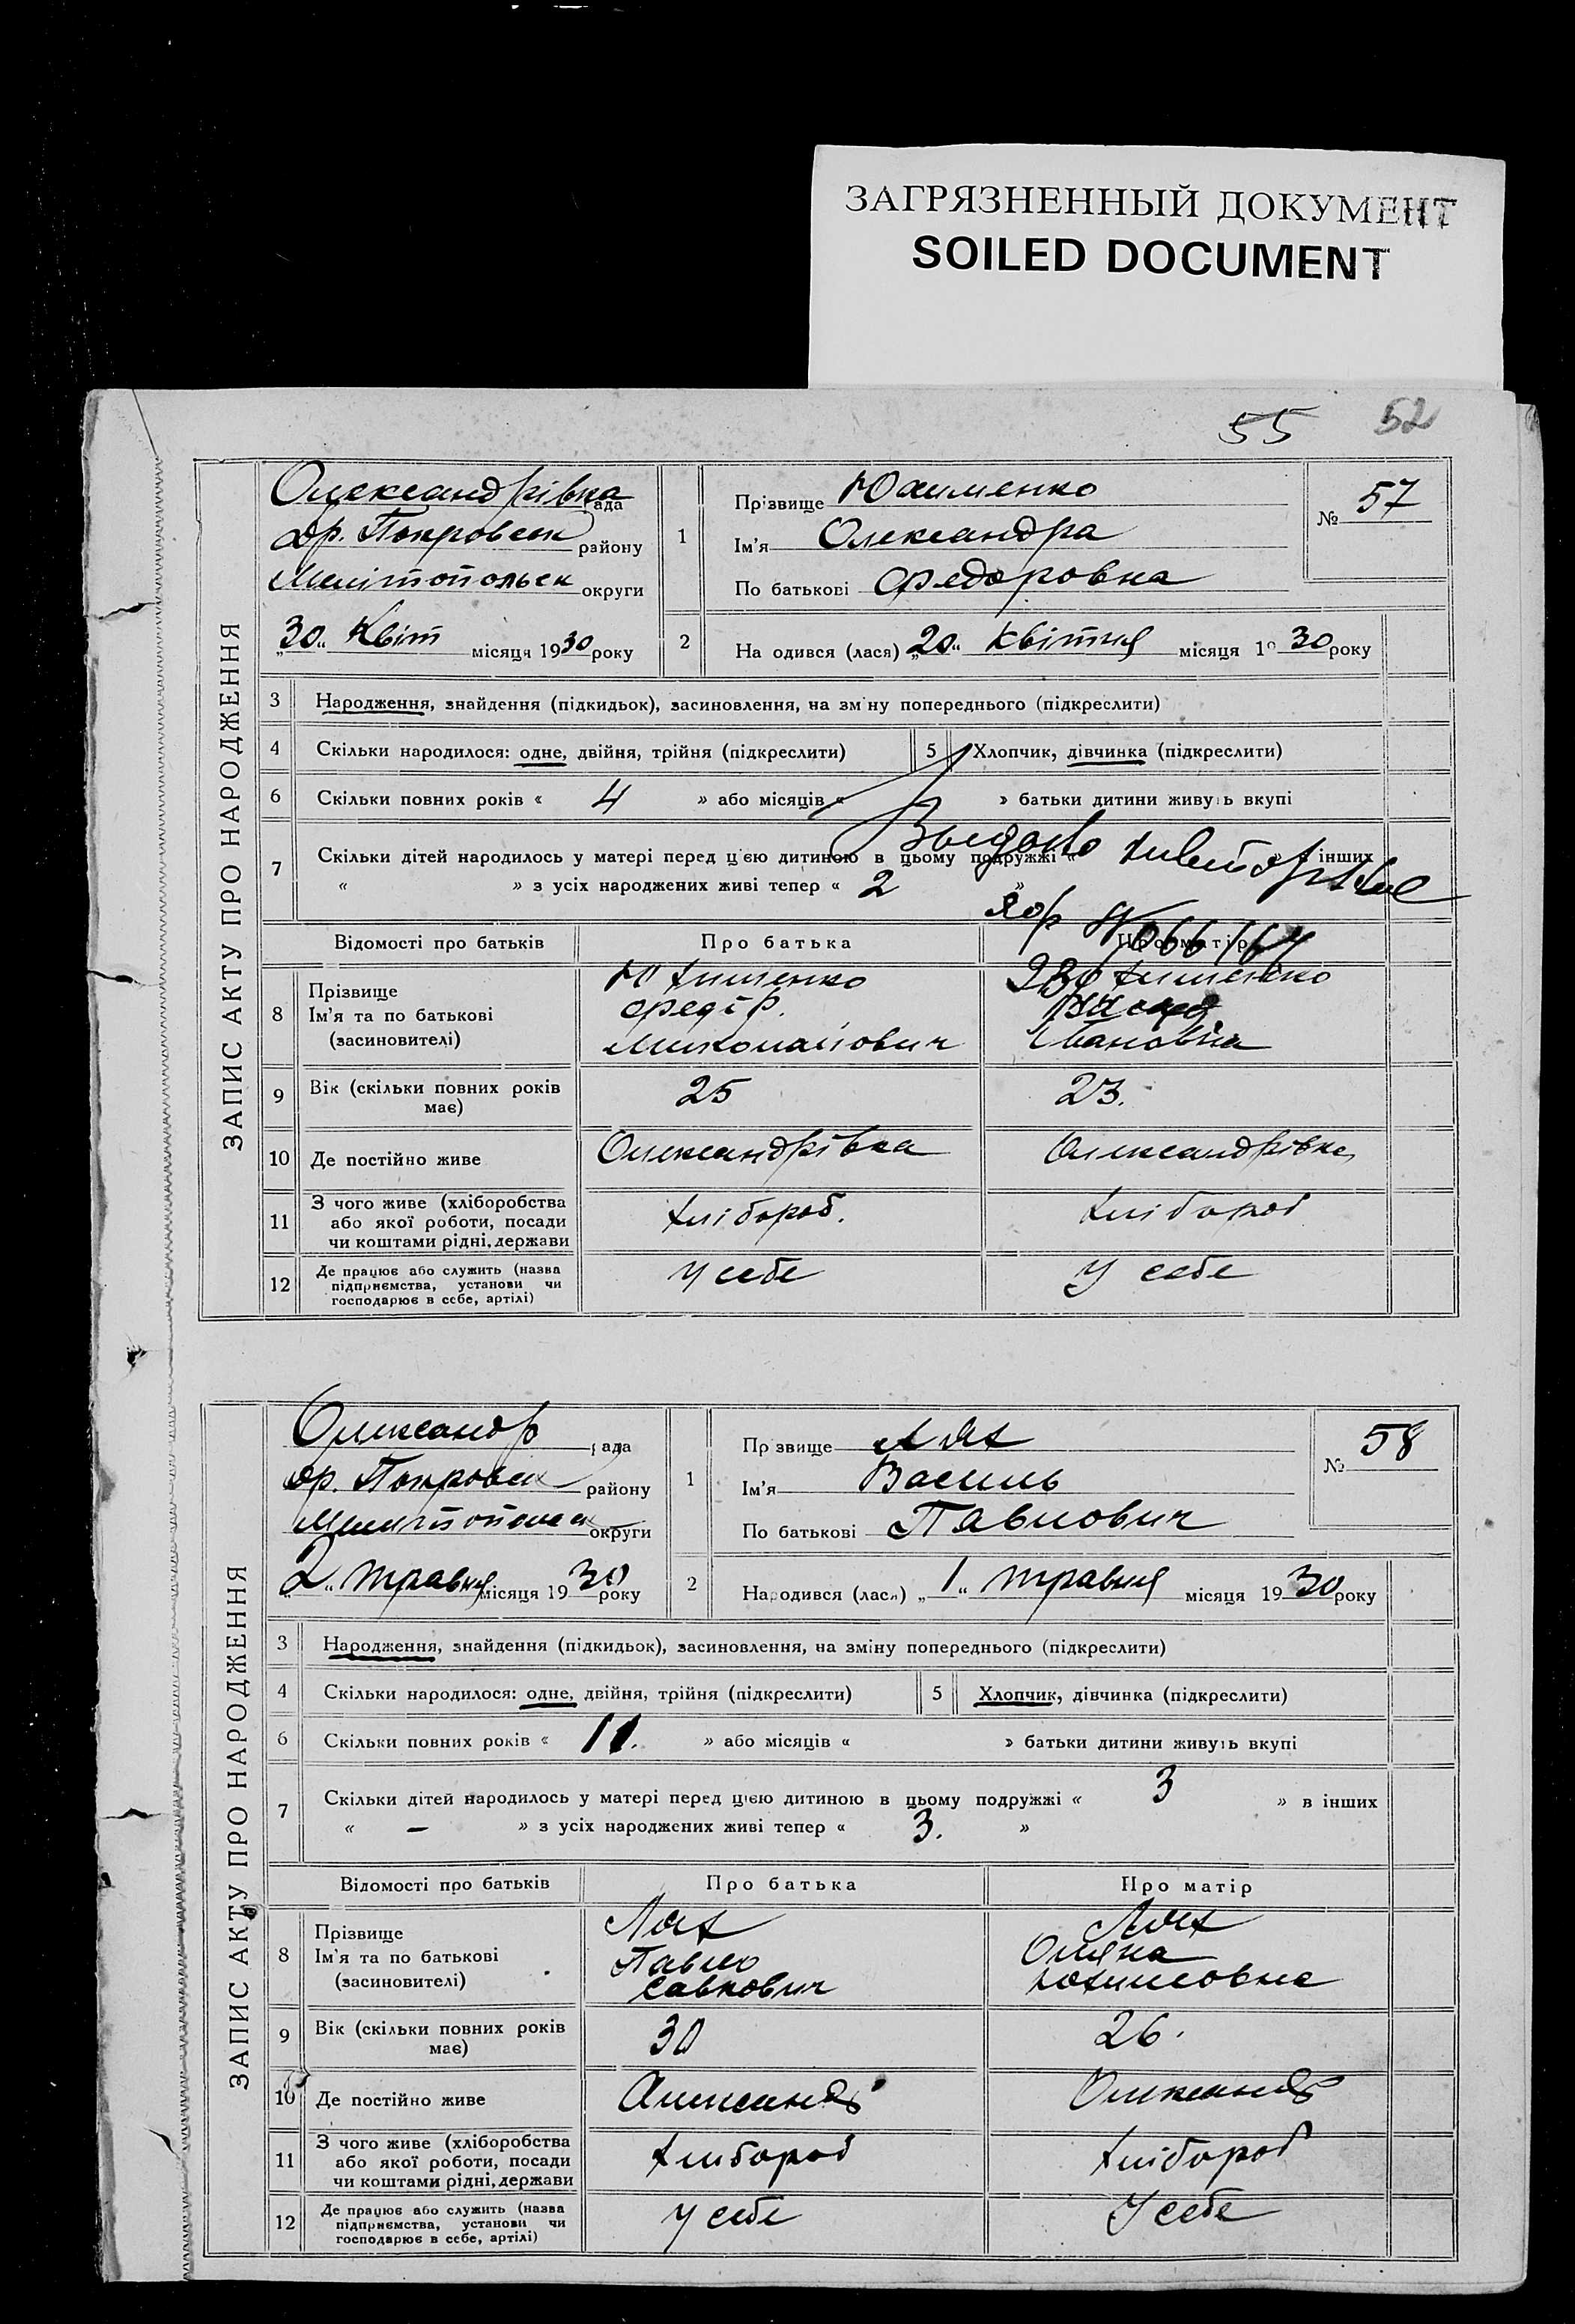 ЗАГРЯЗНЕННЫЙ ДОКУМЕНТ
SOILED DOCUMENT
55 52
ЗАПИС АКТУ ПРО НАРОДЖЕННЯ
Олександрівка рада
др. Покровськ району
Мелітопольськ округи
„30“ Квіт місяця 1930 року
1
Прізвище Юхименко
Ім'я Олександра
По батькові Федоровна
№ 57
2
На одився (лася) „20“ Квітня місяця 19 30 року
3 Народження, знайдення (підкидьок), засиновлення, на зміну попереднього (підкреслити)
4 Скільки народилося: одне, двійня, трійня (підкреслити) 5 Хлопчик, дівчинка (підкреслити)
6 Скільки повних років « 4 » або місяців « » батьки дитини живуть вкупі
7 Скільки дітей народилось у матері перед цією дитиною в цьому подружжі « » в інших
« » з усіх народжених живі тепер « 2 »
Відомості про батьків Про батька Про матір
8 Прізвище Юхименко Юхименко
Ім'я та по батькові Федір
(засиновителі) Миколайович Івановна
9 Вік (скільки повних років має) 25 23.
10 Де постійно живе Олександрівка Олександрівка
11 З чого живе (хліборобства
або якої роботи, посади Хлібороб. Хлібороб
чи коштами рідні, держави
12 Де працює або служить (назва
підприємства, установи чи У себе У себе
господарює в себе, артілі)
ЗАПИС АКТУ ПРО НАРОДЖЕННЯ
Олександр рада
др. Покровськ району
округи
„2“ травня місяця 1930 року
1
Прізвище Лях
Ім'я Василь
По батькові Павлович
№ 58
2
Народився (лася) „1“ травня місяця 1930 року
3 Народження, знайдення (підкидьок), засиновлення, на зміну попереднього (підкреслити)
4 Скільки народилося: одне, двійня, трійня (підкреслити) 5 Хлопчик, дівчинка (підкреслити)
6 Скільки повних років « 11. » або місяців « » батьки дитини живуть вкупі
7 Скільки дітей народилось у матері перед цією дитиною в цьому подружжі « 3 » в інших
« – » з усіх народжених живі тепер « 3. »
Відомості про батьків Про батька Про матір
8 Прізвище Лях Лях
Ім'я та по батькові Павло Оляна
(засиновителі) Савкович Юхимовна
9 Вік (скільки повних років має) 30 26.
10 Де постійно живе Олександр Олександр
11 З чого живе (хліборобства
або якої роботи, посади Хлібороб Хлібороб
чи коштами рідні, держави
12 Де працює або служить (назва
підприємства, установи чи У себе У себе
господарює в себе, артілі)